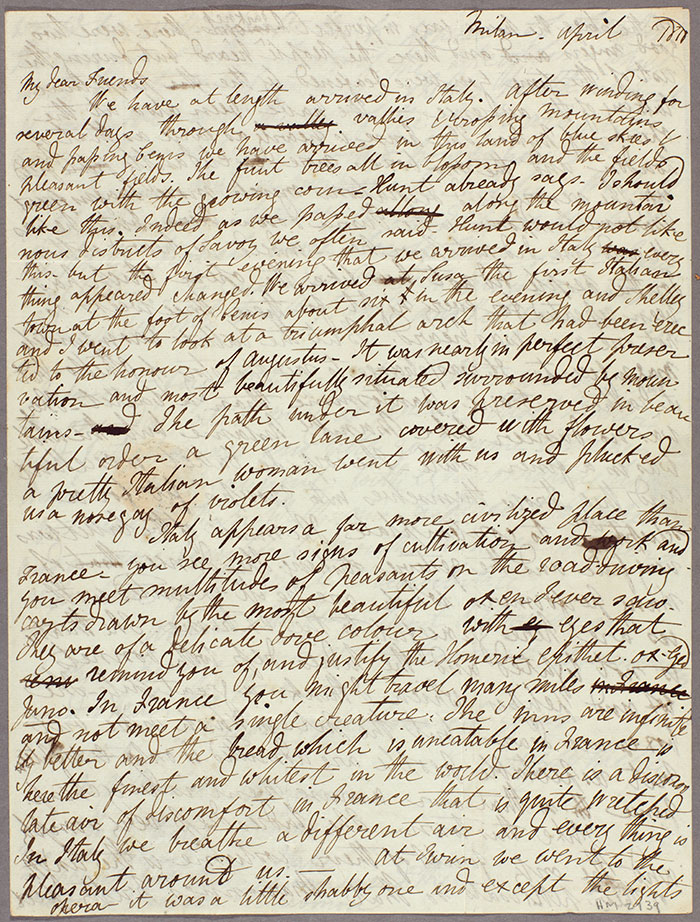 Milan - April
My dear Friends
We have at length arrived in Italy. After winding for
several days through vallies & crossing mountains
and passing Cenis we have arrived in this land of blue skies &
pleasant fields. The fruit trees all in blossom and the fields
green with the growing corn - Hunt already says - I should
like this. Indeed as we passed along the mountai
nous districts of Savoy we often said - Hunt would not like
this - but the first evening that we arrived in Italy was every
thing appeared changed. We arrived at Susa the first Italian
town at the foot of Cenis about six in the evening and Shelley
and I went to look at a triumphal arch that had been erec
ted to the honour of Augustus - It was nearly in perfect preser
vation and most beautifully situated surrounded by moun
tains - and The path under it was preserved in beau
tiful order a green lane covered with flowers
a pretty Italian woman went with us and plucked
us a nosegay of violets.
Italy appears a far more civilized place than
France - you see more signs of cultivation and work and
you meet multitudes of peasants on the road - driving
carts drawn by the most beautiful oxen I ever saw -
They are of a delicate dove colour with ey eyes that
remind you of and justify the Homeric epithet. ox-eyed
Juno. In France you might travel many miles in France
and not meet a single creature. The inns are infinite
ly better and the bread which is uneatable in France is
here the finest and whitest in the world. There is a disconso
late air of discomfort in France that is quite wretched
In Italy we breathe a different air and every thing is
pleasant around us. — At Turin we went to the
opera - it was a little shabby one and except the lights
HM 2739